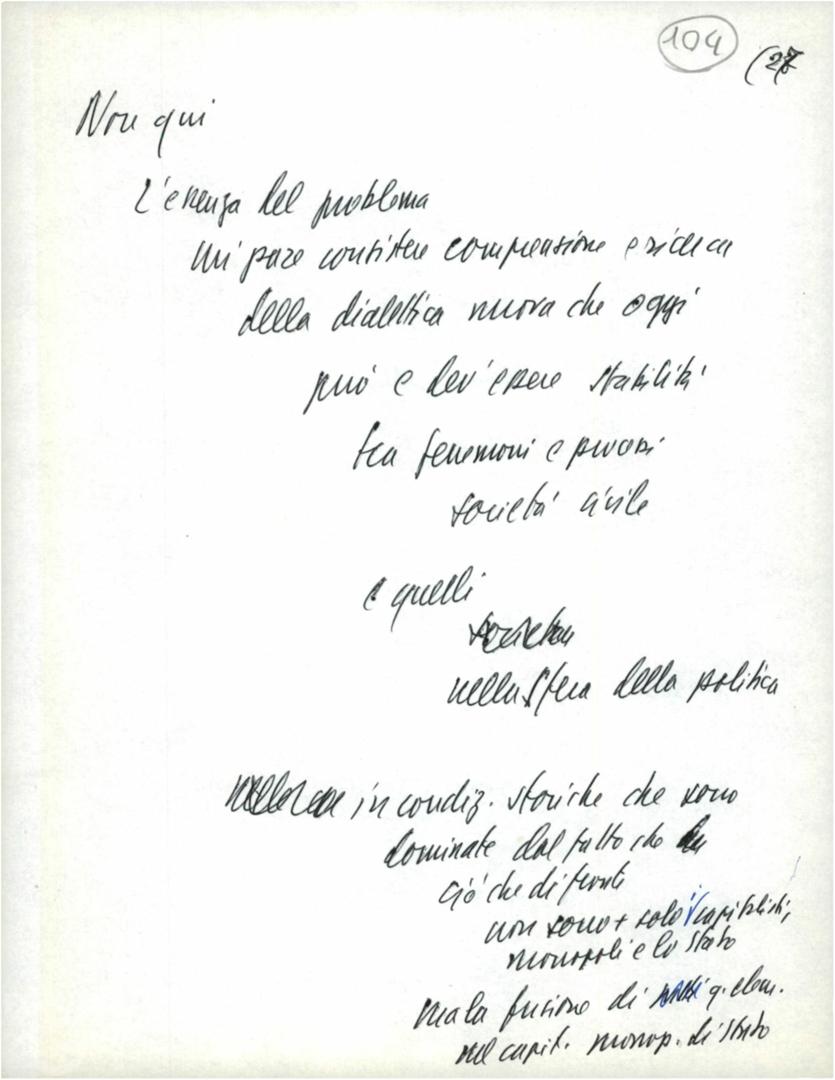 104
(27
Non qui
L'essenza del problema
mi pare consistere comprensione e ricerca
della dialettica nuova che oggi
può e dev'essere stabilirsi
tra fenomeni e processi
società civile
e quelli
nella sfera della politica
in condiz. storiche che sono
dominate dal fatto che
ciò che di fronte
non sono + solo i capitalisti,
monopoli e lo Stato
ma la fusione di q. elem.
nel capit. monop. di Stato